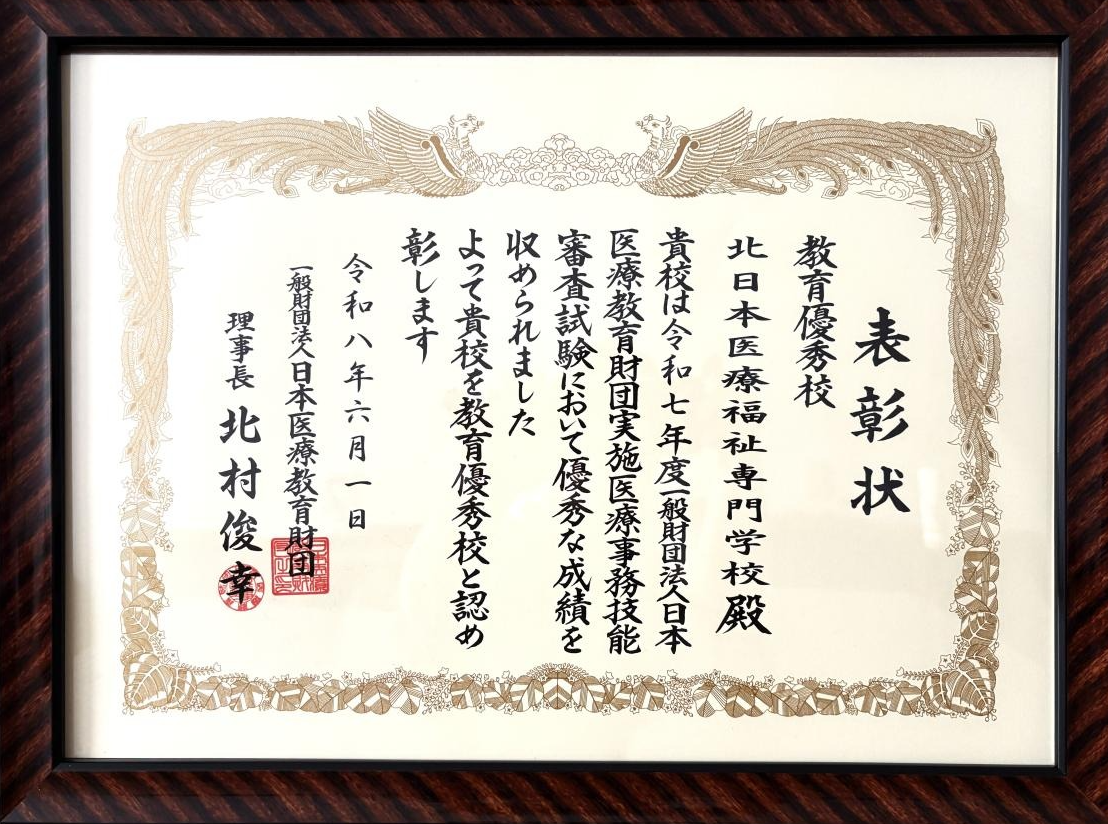 表彰状
教育優秀校
北日本医療福祉専門学校殿
貴校は令和七年度一般財団法人日本
医療教育財団実施医療事務技能
審査試験において優秀な成績を
収められました
よって貴校を教育優秀校と認め
彰します
令和八年六月一日
一般財団法人日本医療教育財団
理事長 北村俊幸